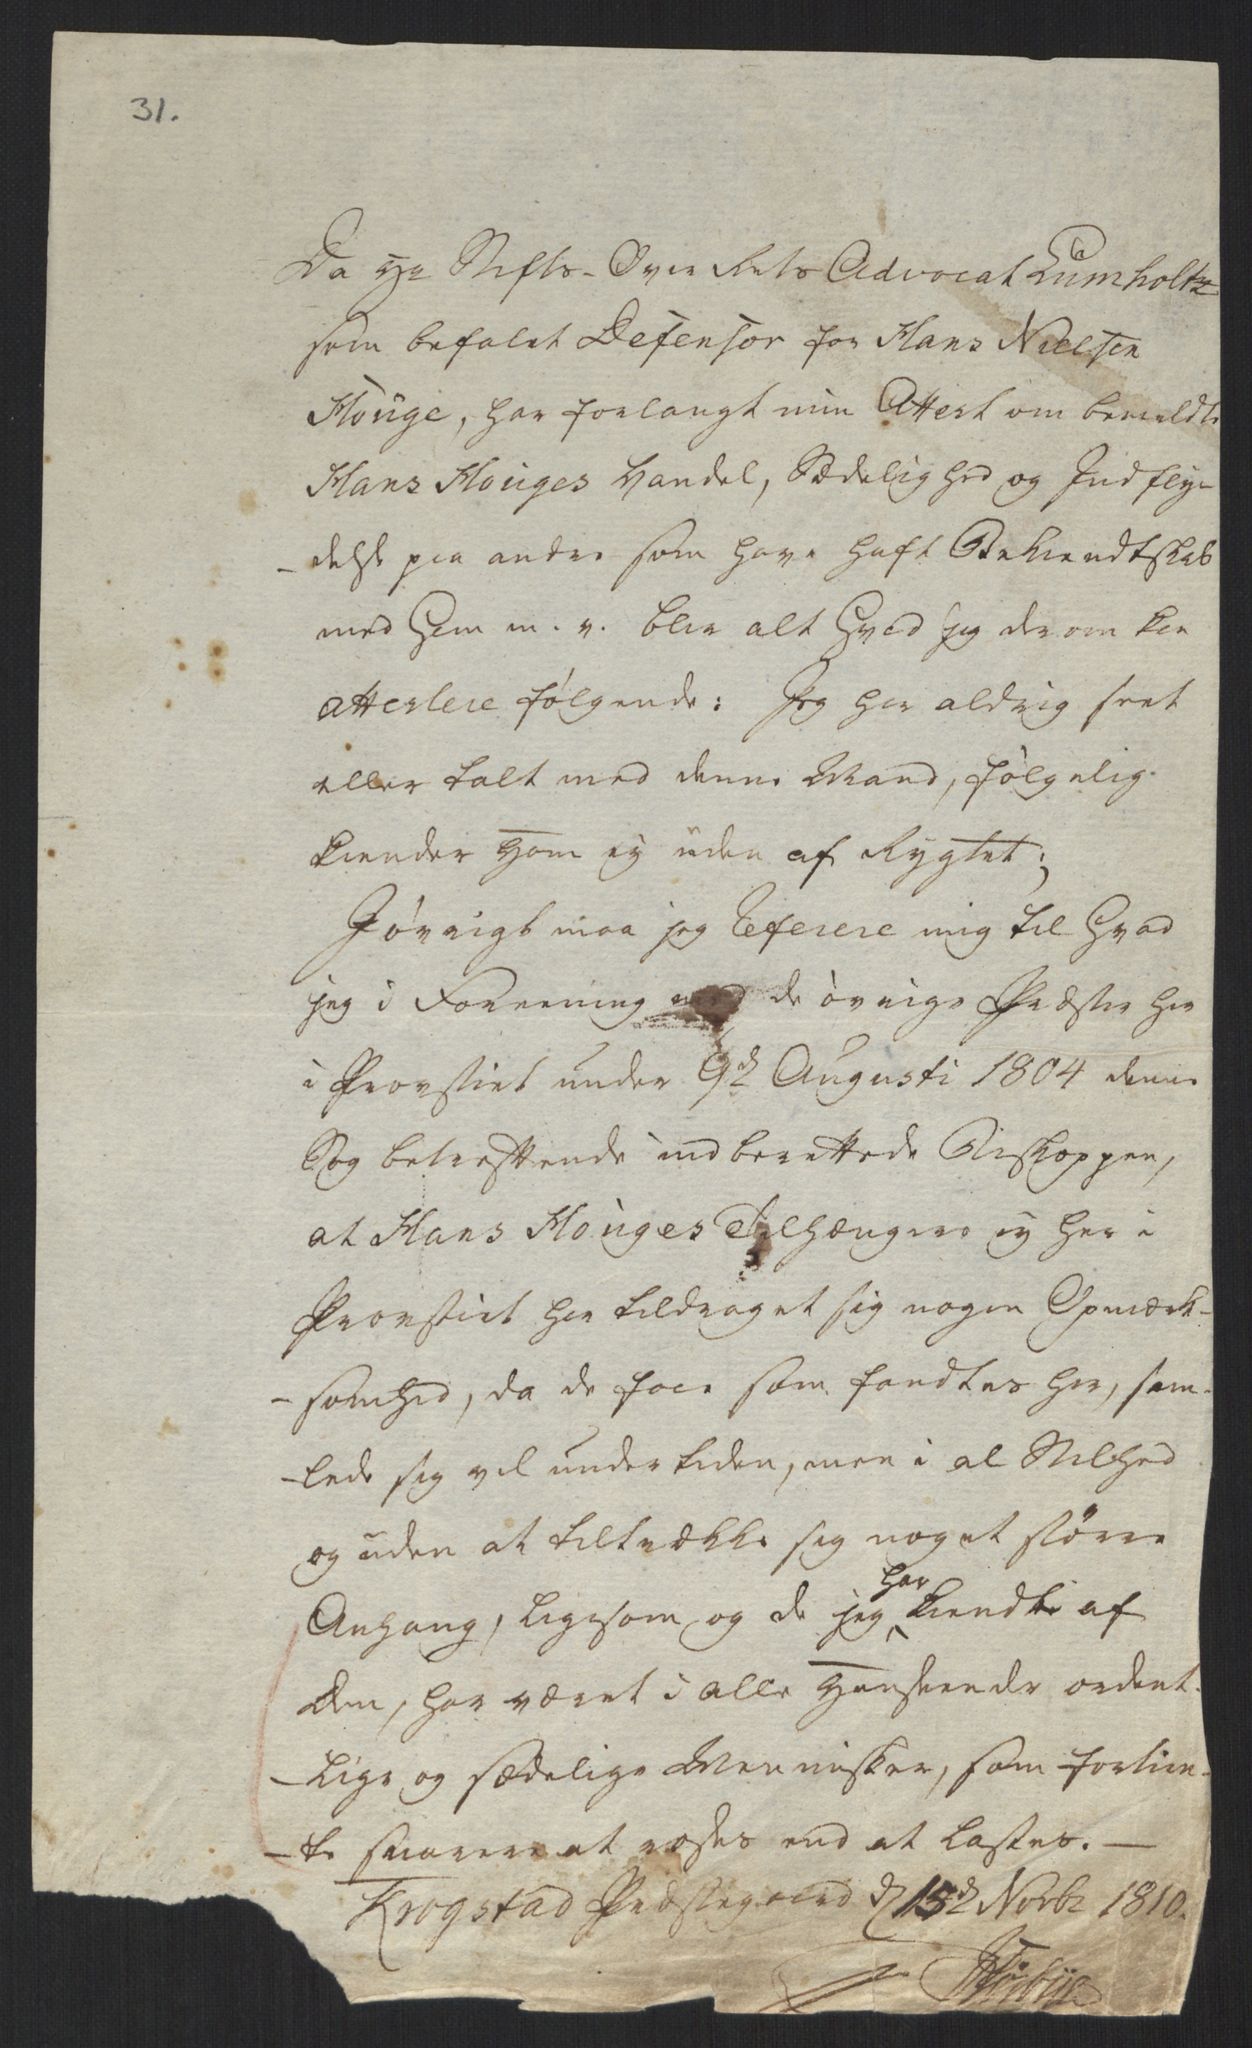 31.
Da Hr Stifts-Over Rets Advocat Lumholtz
som befalet Defensor for Hans Nielsen
Houge, har forlangt min Attest om bemeldte
Hans Houges Vandel, Sædelighed og Indfly-
-delse paa andre som have haft Bekiendtskab
med Ham m. v. blir alt hvad jeg derom kan
attestere følgende: Jeg har aldrig seet
eller talt med denne Mand, følgelig
kiender Ham ej uden af Rygtet;
Iøvrigt maa jeg referere mig til hvad
jeg i Foreening med de øvrige Præster her
i Provstiet under 9d Augusti 1804 denne
Sag betreffende indberettede Biskoppen,
at Hans Houges Tilhængere ej her i
Provstiet har tildraget sig nogen Opmærk-
-somhed, da de faae som fandtes her, sam-
-lede sig vel undertiden, men i al Stilhed
og uden at tiltrække sig noget større
Anhang, ligesom og de jeg har kiendte af
dem, har været i alle Henseender ordent-
-lige og sædelige Mennisker, som fortien-
-te snarere at roses end at lastes. —
Krogstad Præstegaard d 15d Novbr 1810.